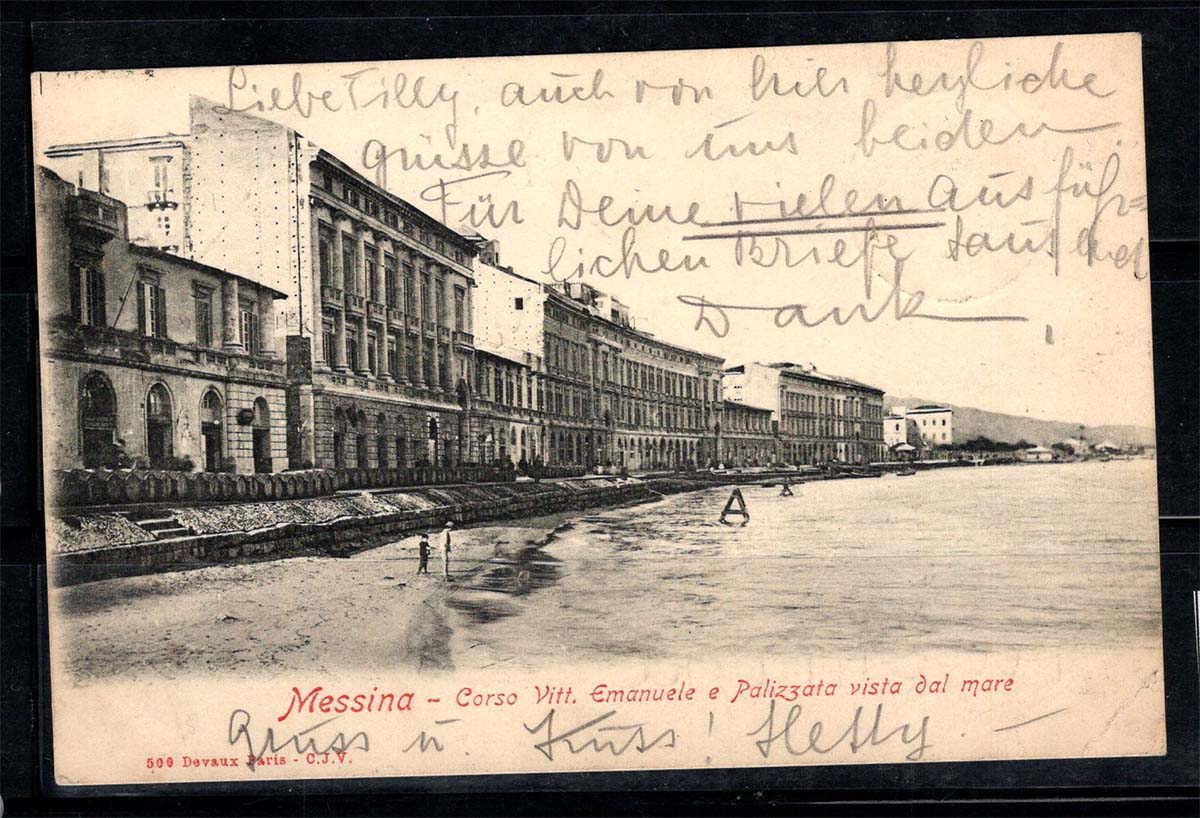 Liebe Tilly, auch von hier herzliche
grüsse von uns beiden
Für Deine vielen Ausführ=
lichen Briefe tausend
Dank,
Messina - Corso Vitt. Emanuele e Palizzata vista dal mare
Gruss u. Kuss! Hetty.
509 Devaux Paris - C.J.V.